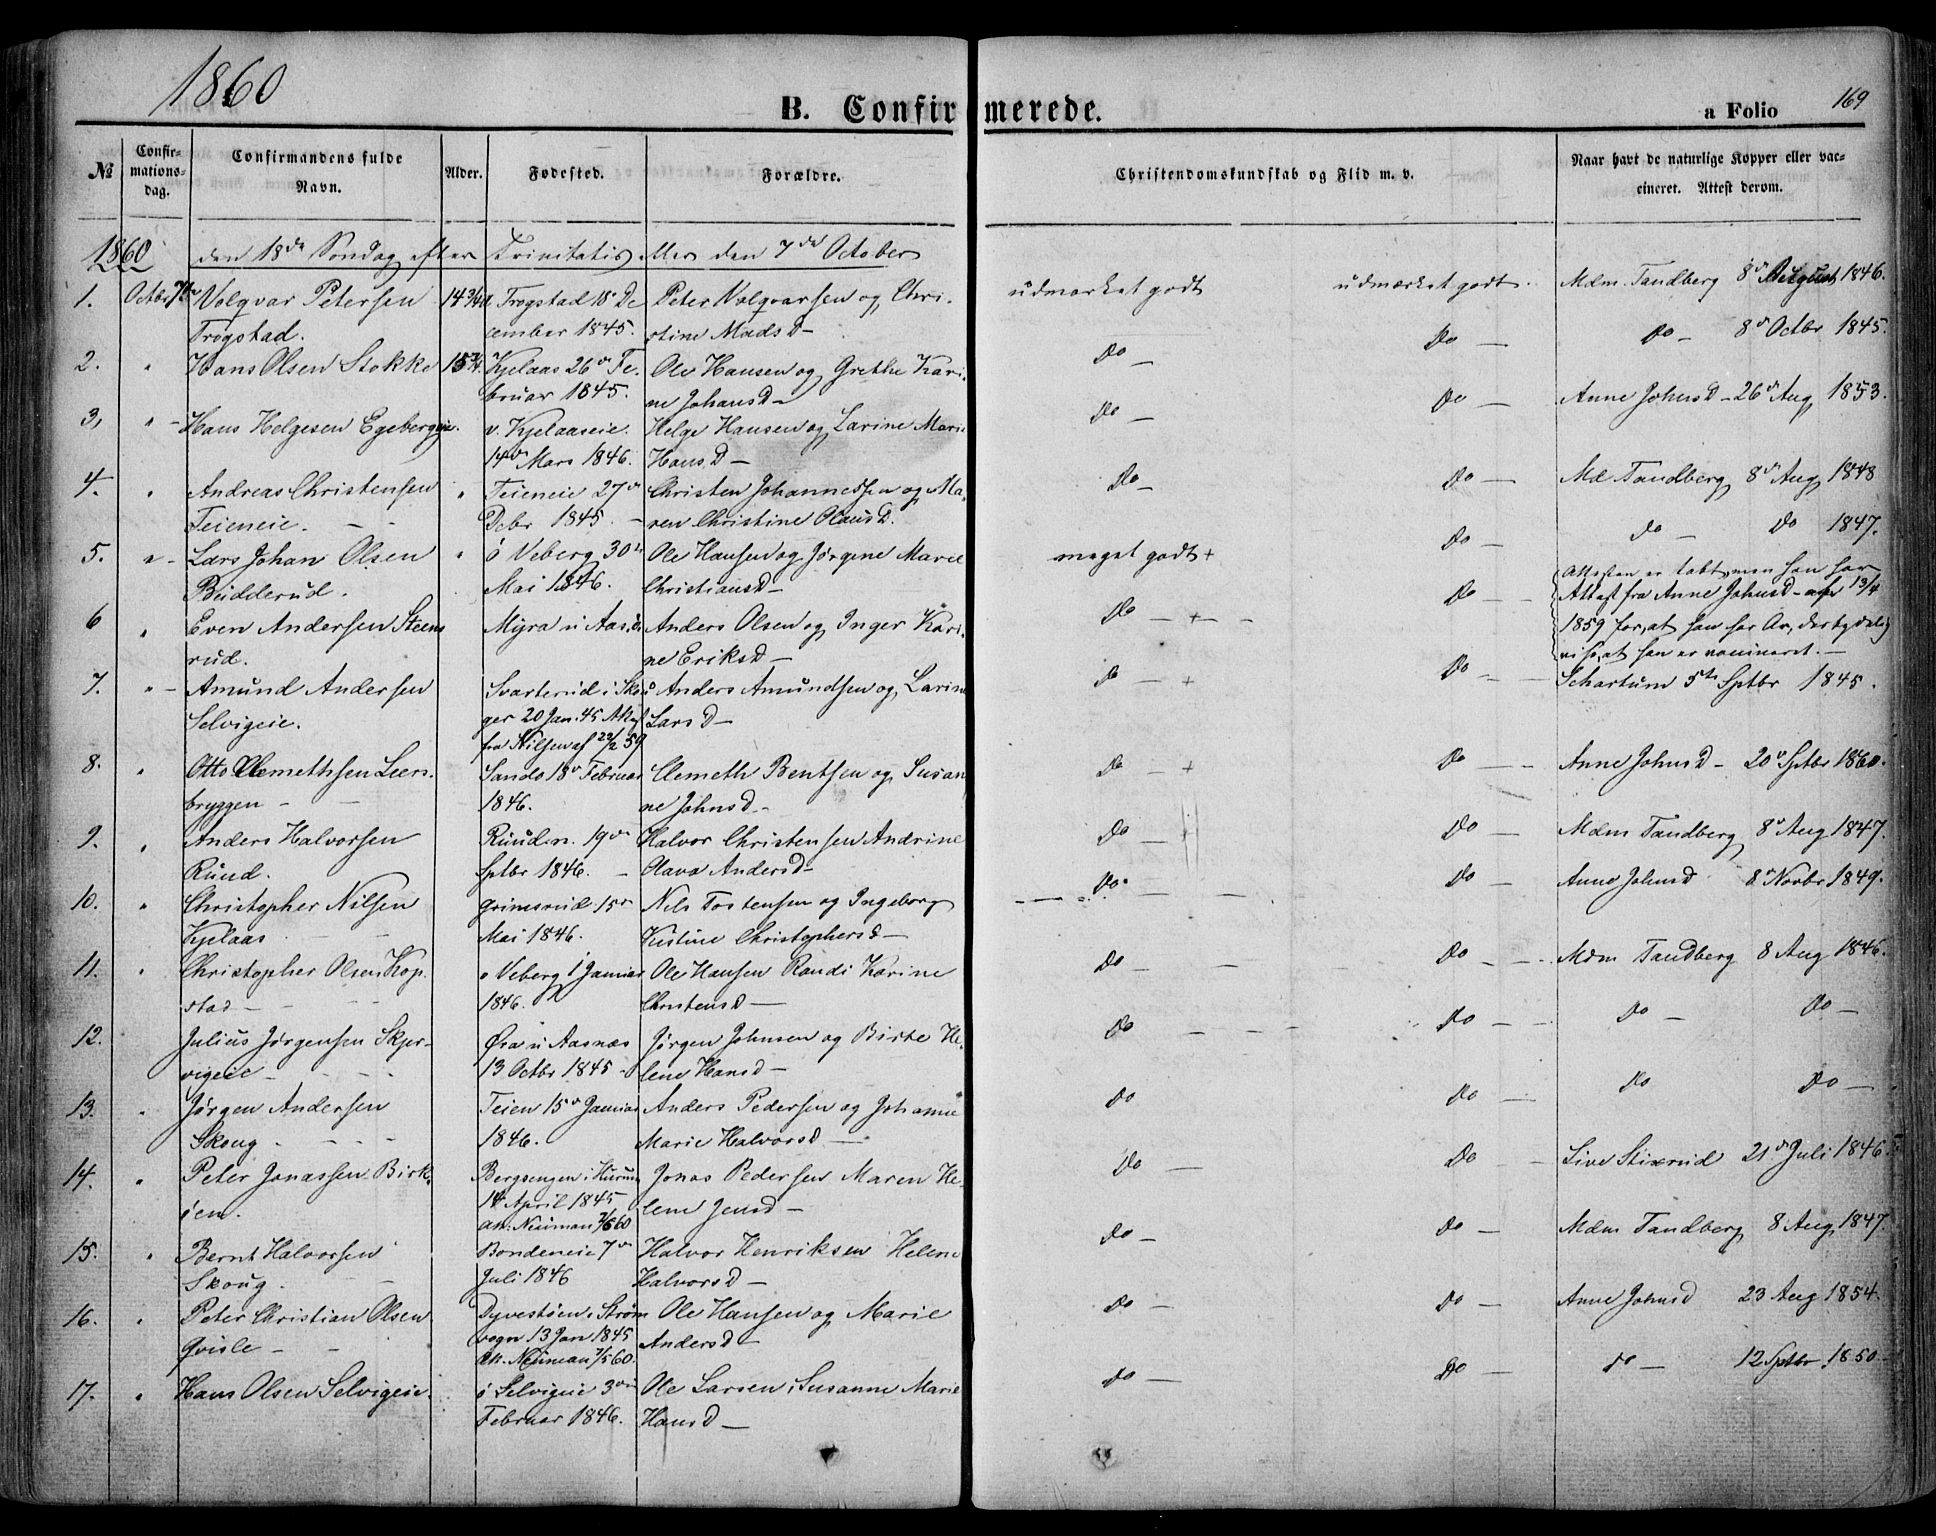 1860
169
B. Confirmerede.
a Folio
№
Confirmations-dag.
Confirmandens fulde Navn.
Alder.
Fødested.
Forældre.
Christendomskundskab og Flid m. v.
Naar havt de naturlige Kopper eller vaccineret. Attest derom.
1860 den 18de Søndag efter Trinitatis eller den 7de October
1. Octbr 7de Volqvar Petersen 14 3/4 Trøgstad 18de De- Peter Volqvarsen og Chri- udmærket godt udmærket godt Mdm. Tandberg 8de August 1846.
Trøgstad. cember 1845. stine MadsD—
2. " Hans Olsen Stokke 15 3/4 Kjelaas 26de Fe- Ole Hansen og Grethe Kari- Do — Do — Do — 8de Octbr 1845.
bruar 1845. ne JohansD—
3, " Hans Helgesen Egebergeie. v. Kjelaaseie. Helge Hansen og Larine Marie Do — Do — Anne JohnsD— 26de Aug 1853.
14de Mars 1846. HansD—
4. " Andreas Christensen " Teieneie 27de Christen Johannessen og Ma- Do — Do — Md Tandberg 8de Aug 1848
Teieneie. — — Debr 1845. — ren Christine OlausD.
5. " Lars Johan Olsen " ø Veberg 30te Ole Hansen og Jørgene Marie meget godt + Do — Do — Do 1847.
Budderud. Mai 1846. ChristiansD—
6 " Even Andersen Steens- Myra u Aas Anders Olsen og Inger Kari- Do — + — Do — Attesten er tabt, men han har
rud. ne EriksD— Attest fra Anne JohnsD— af 13/4
1859 for, at han har Ar, der tydelig
vise, at han er vaccineret. —
7. " Amund Andersen Svarterud i Sko- Anders Amundsen og Larine Do — + Do — Schartum 5te Sptbr 1845.
Selvigeie. ger 20 Jan. 45 LarsD—
fra Nilsen af 22/2 59
8. " Otto Clemethsen Leer- Sando 18de Februar Clemeth Bentsen og Susan- Do — + Do — Anne JohnsD— 20de Sptbr 1860.
bryggen — — 1846. ne JohnsD—
9. " Anders Halvorsen Ruudsn. 19de Halvor Christensen Andrine Do — + Do — Mdm Tandberg 8de Aug 1847.
Ruud. Sptbr 1846. — Olava AndersD—
10. " Christopher Nilsen Grimsrud 15de Nils Tostensen og Ingeborg Do — — Do — Anne JohnsD 8de Novbr 1849.
Kjelaas — — Mai 1846. Kistine ChristophersD—
11. " Christopher Olsen Kop- ø Veberg 1 Januar Ole Hansen Randi Karine Do — — Do — Mdm Tandberg 8 Aug 1846.
stad — — 1846. ChristensD—
12. Julius Jørgensen Skjer- Øra u Aasnæs Jørgen Johnsen og Birte He- Do — — — Do — Do — Do —
vigeie — — 13 Octbr 1845 — lene HansD—
13. " Jørgen Andersen Teien 15de Januar Anders Pedersen og Johanne Do Do — Do Do —
Skoug — — 1846. Marie HalvorsD—
14. " Peter Jonassen Birk- Bergsengen i Hurum Jonas Pedersen Maren He- Do — Do — Live Stixrud 21de Juli 1846.
øen. 14 April 1845 lene JensD—
att: Neuman 7/5 60
15. " Bernt Halvorsen Bondeneie 7de Halvor Henriksen Helene Do — Do — Mdm Tandberg 8 Aug 1847.
Skoug. Juli 1846 HalvorsD—
16. " Peter Christian Olsen Dyvestøen, Strøm- Ole Hansen og Marie Do — Do — Anne JohnsD 23 Aug 1854.
Qvisle — — vogn 13 Jan 1845 AndersD—
att. Neuman 7/5 60.
17. " Hans Olsen Selvigeie. ø Selvigeie 3die Ole Larsen, Susanne Marie Do — Do — Do — 12 Sptbr 1850
Februar 1846. HansD—